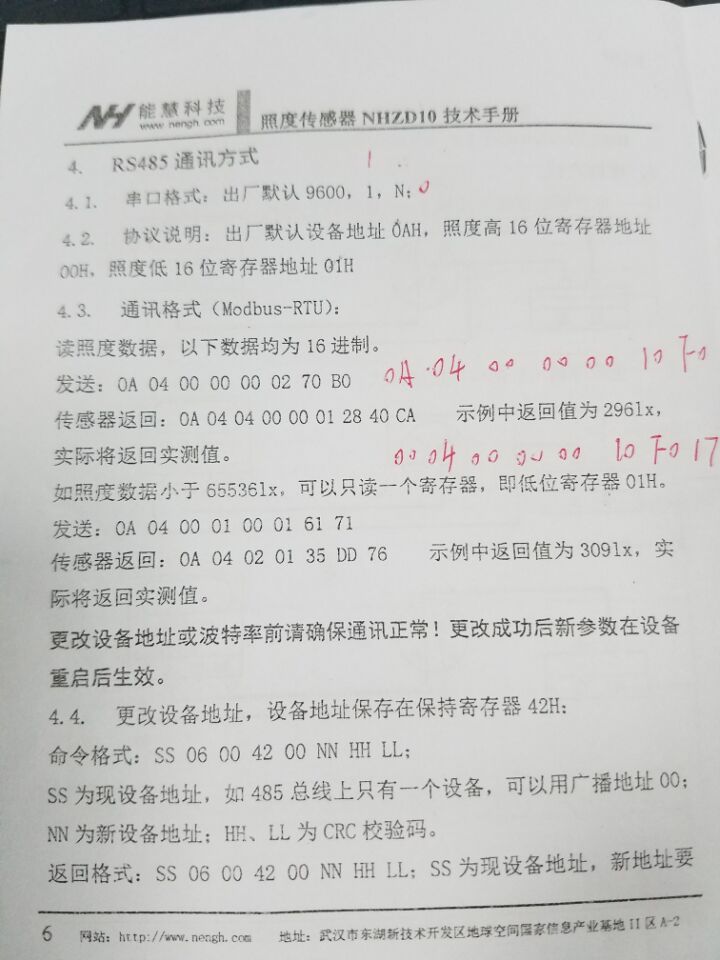 NH 能慧科技
www.nengh.com
照度传感器 NHZD10 技术手册
4. RS485 通讯方式
1 .
4.1. 串口格式：出厂默认 9600，1，N；0
4.2. 协议说明：出厂默认设备地址 0AH，照度高 16 位寄存器地址
00H，照度低 16 位寄存器地址 01H
4.3. 通讯格式（Modbus-RTU）：
读照度数据，以下数据均为 16 进制。
发送：0A 04 00 00 00 02 70 B0
0A 04 00 00 00 10 F0
传感器返回：0A 04 04 00 00 01 28 40 CA 示例中返回值为 296lx，
实际将返回实测值。
00 04 00 00 00 10 F0 17
如照度数据小于 65536lx，可以只读一个寄存器，即低位寄存器 01H。
发送：0A 04 00 01 00 01 61 71
传感器返回：0A 04 02 01 35 DD 76 示例中返回值为 309lx，实
际将返回实测值。
更改设备地址或波特率前请确保通讯正常！更改成功后新参数在设备
重启后生效。
4.4. 更改设备地址，设备地址保存在保持寄存器 42H：
命令格式：SS 06 00 42 00 NN HH LL；
SS 为现设备地址，如 485 总线上只有一个设备，可以用广播地址 00；
NN 为新设备地址；HH、LL 为 CRC 校验码。
返回格式：SS 06 00 42 00 NN HH LL；SS 为现设备地址，新地址要
6 网站：http://www.nengh.com 地址：武汉市东湖新技术开发区地球空间国家信息产业基地 II 区 A-2